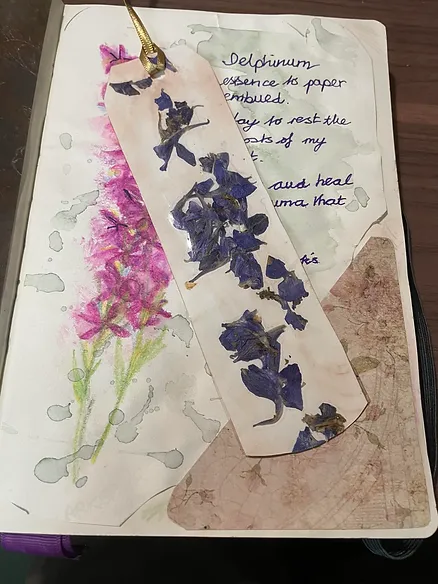 Delphinum
essence to paper
embued.
lay to rest the
osts of my
t.
and heal
uma that
t's